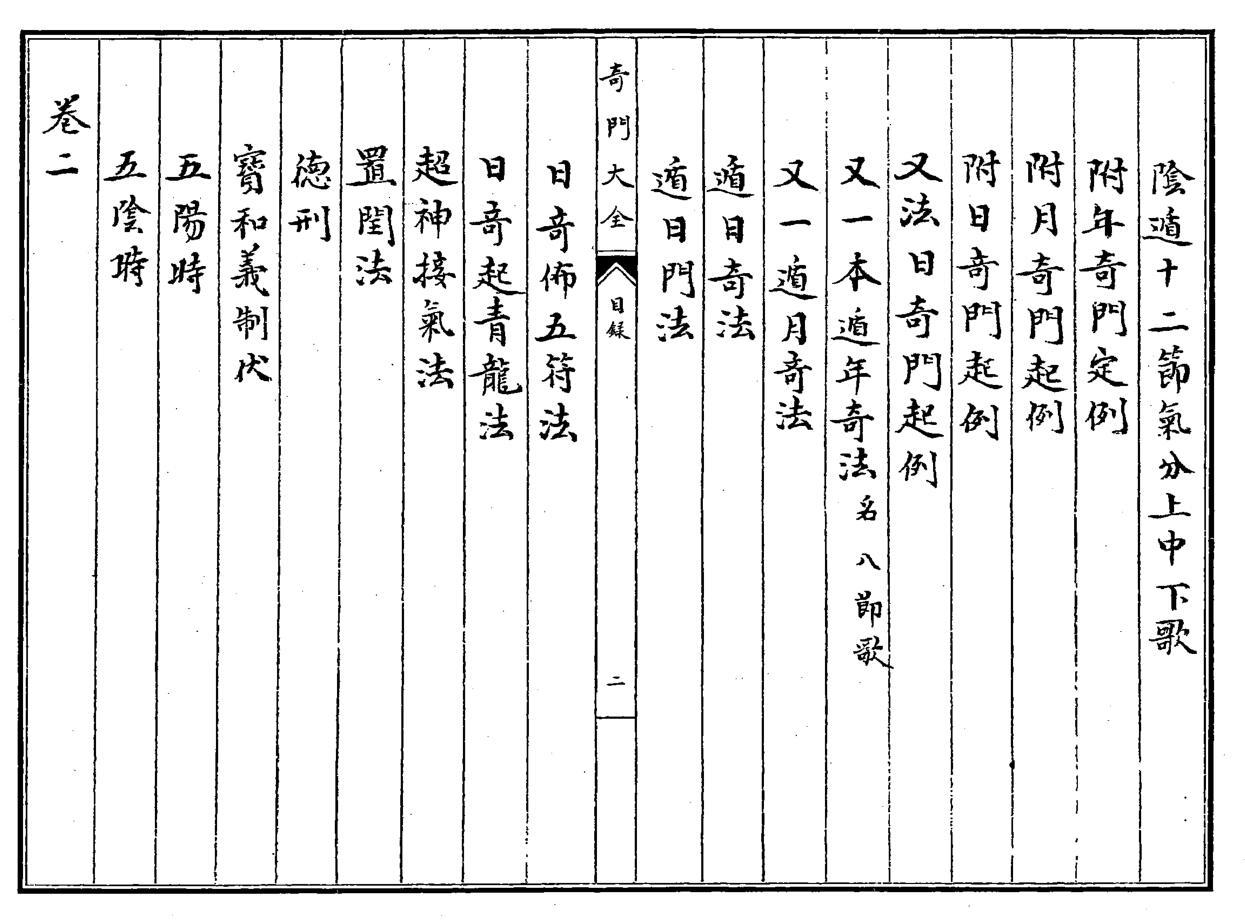 陰遁十二節氣分上中下歌
附年奇門定例
附月奇門起例
附日奇門起例
又法日奇門起例
又一本遁年奇法名八節歌
又一遁月奇法
遁日奇法
遁日門法
奇門大全 目錄 二
日奇佈五符法
日奇起青龍法
超神接氣法
置閏法
德刑
寶和義制伏
五陽時
五陰時
卷二